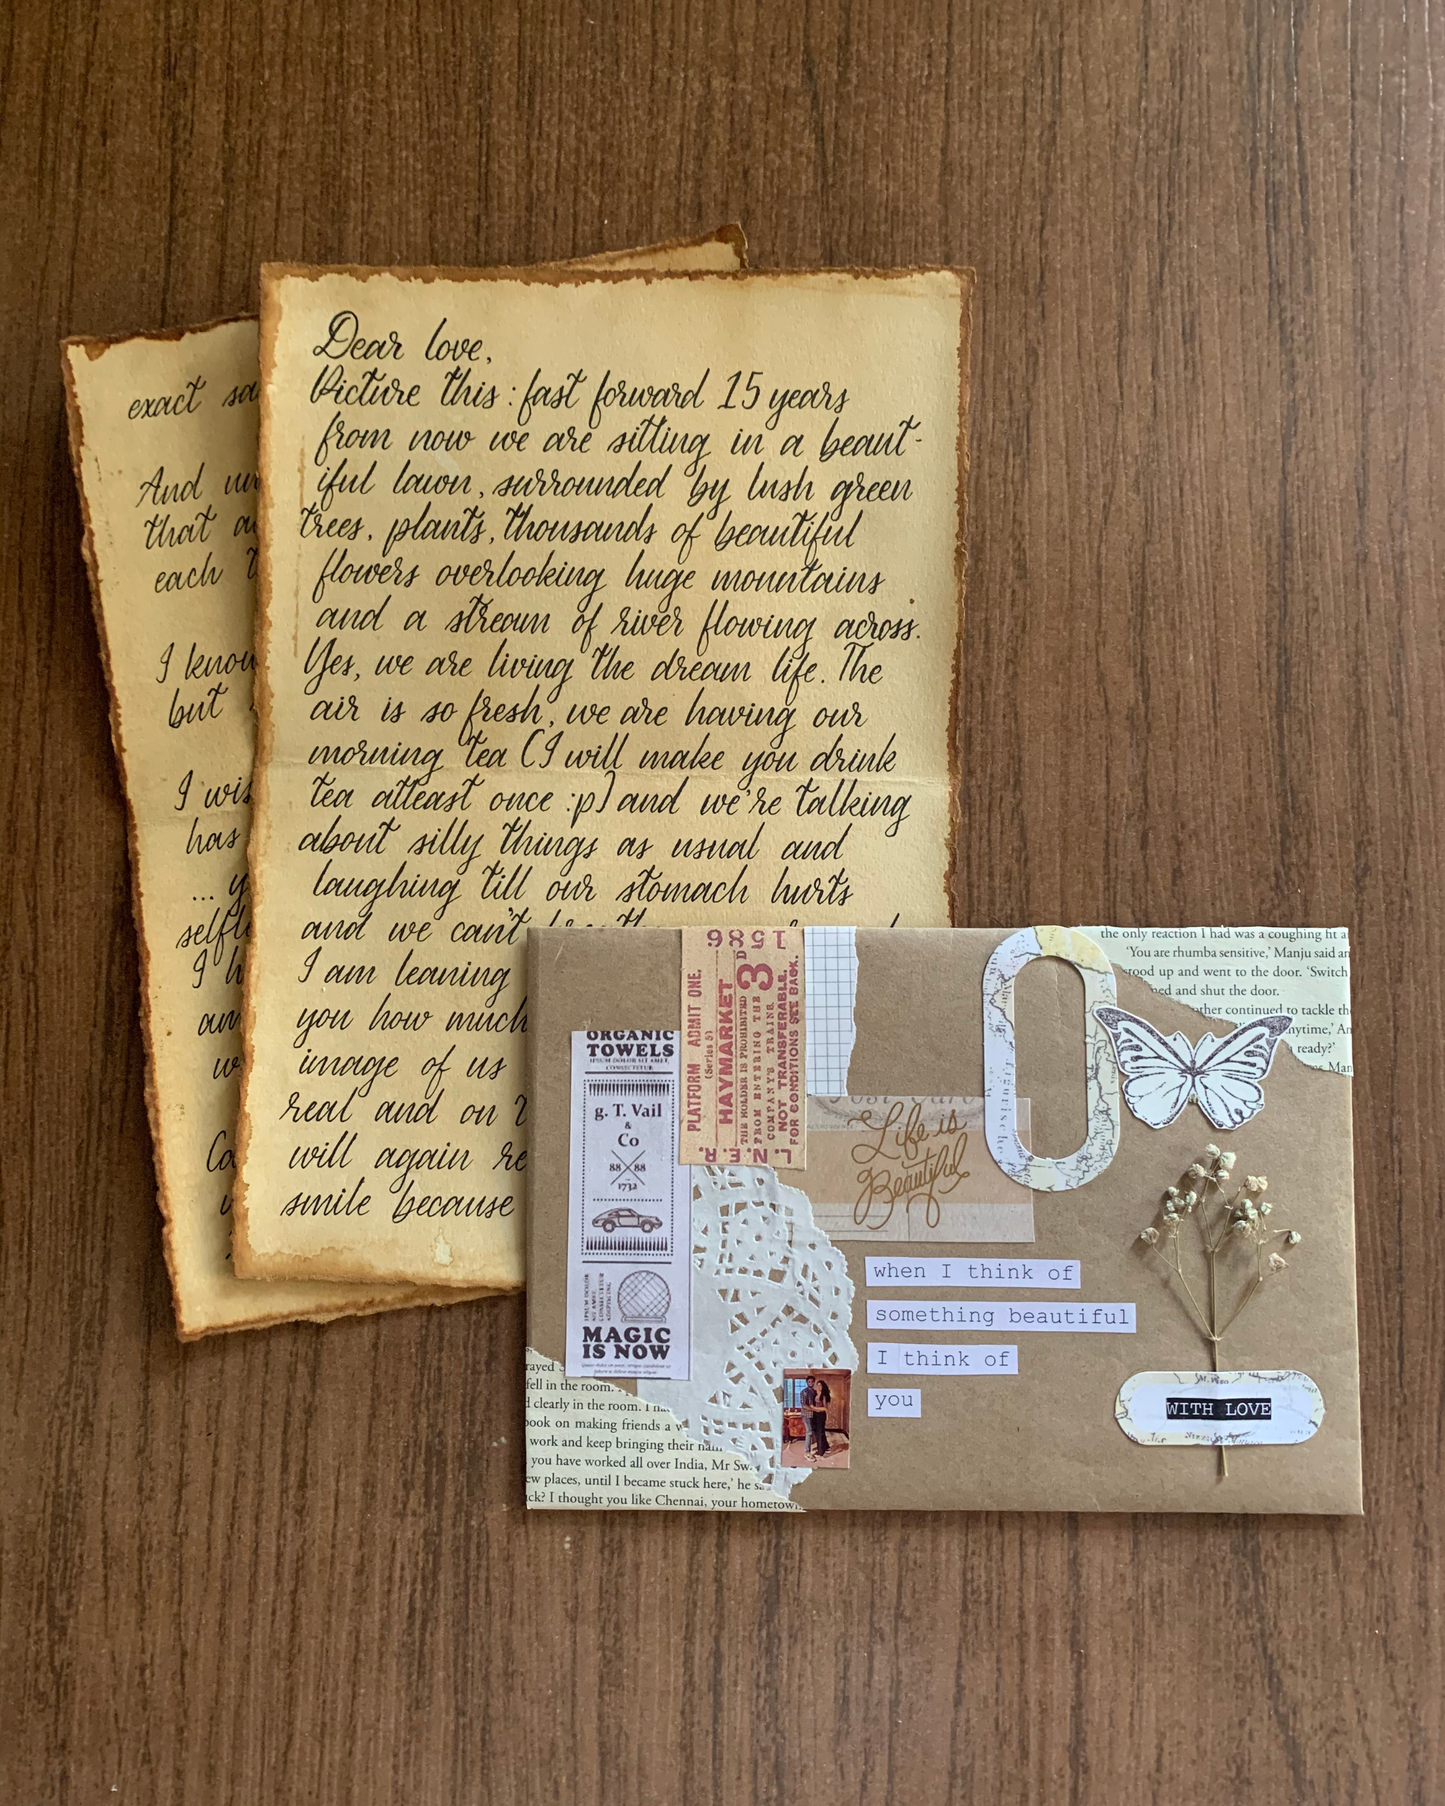 Dear love,
Picture this : fast forward 15 years
from now we are sitting in a beaut-
iful lawn, surrounded by lush green
trees, plants, thousands of beautiful
flowers overlooking huge mountains
and a stream of river flowing across.
Yes, we are living the dream life. The
air is so fresh, we are having our
morning tea (I will make you drink
tea atleast once :p) and we're talking
about silly things as usual and
laughing till our stomach hurts
and we can't
I am leaning
you how much
image of us
real and on
will again
smile because
exact
And
that
each
I know
but
I
has
...
I
ORGANIC
TOWELS
IPSUM DOLOR SIT AMET,
CONSECTETUR
g. T. Vail
&
Co
88 88
1732
MAGIC
IS NOW
1586
PLATFORM ADMIT ONE.
(Series 5)
HAYMARKET
3D
THE HOLDER IS PROHIBITED
FROM ENTERING THE
COMPANY'S TRAINS.
NOT TRANSFERABLE.
FOR CONDITIONS SEE BACK.
L.N.E.R.
Post Card
Life is
Beautiful
when I think of
something beautiful
I think of
you
WITH LOVE
the only reaction I had was a coughing fit
'You are rhumba sensitive,' Manju said
up and went to the door. 'Switch
and shut the door.
continued to tackle
ready?'
fell in the room.
clearly in the room. I
on making friends a
work and keep bringing their
you have worked all over India, Mr
places, until I became stuck here,' he
I thought you like Chennai, your hometown